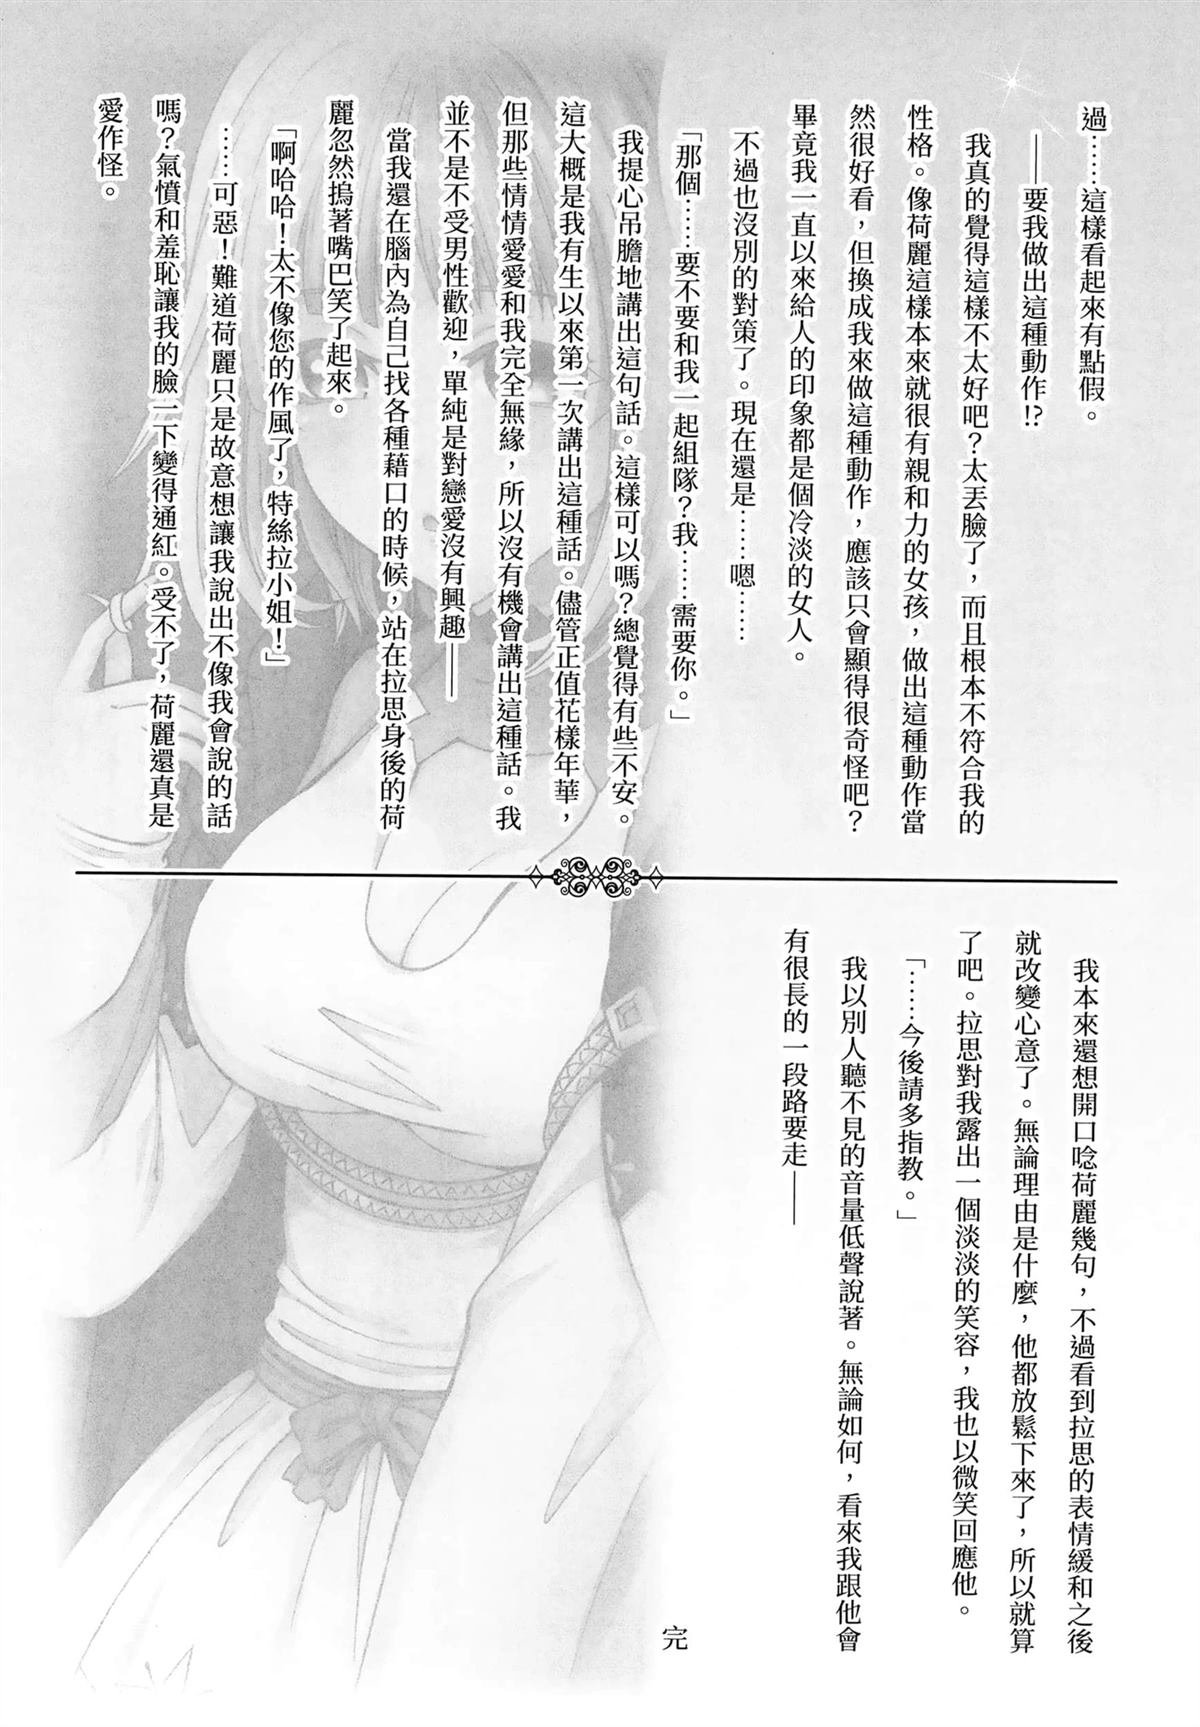 過……這樣看起來有點假。
——要我做出這種動作!?
我真的覺得這樣不太好吧？太丟臉了，而且根本不符合我的
性格。像荷麗這樣本來就很有親和力的女孩，做出這種動作當
然很好看，但換成我來做這種動作，應該只會顯得很奇怪吧？
畢竟我一直以來給人的印象都是個冷淡的女人。
不過也沒別的對策了。現在還是……嗯……
「那個……要不要和我一起組隊？我……需要你。」
我提心吊膽地講出這句話。這樣可以嗎？總覺得有些不安。
這大概是我有生以來第一次講出這種話。儘管正值花樣年華，
但那些情情愛愛和我完全無緣，所以沒有機會講出這種話。我
並不是不受男性歡迎，單純是對戀愛沒有興趣——
當我還在腦內為自己找各種藉口的時候，站在拉思身後的荷
麗忽然摀著嘴巴笑了起來。
「啊哈哈！太不像您的作風了，特絲拉小姐！」
……可惡！難道荷麗只是故意想讓我說出不像我會說的話
嗎？氣憤和羞恥讓我的臉一下變得通紅。受不了，荷麗還真是
愛作怪。
我本來還想開口唸荷麗幾句，不過看到拉思的表情緩和之後
就改變心意了。無論理由是什麼，他都放鬆下來了，所以就算
了吧。拉思對我露出一個淡淡的笑容，我也以微笑回應他。
「……今後請多指教。」
我以別人聽不見的音量低聲說著。無論如何，看來我跟他會
有很長的一段路要走——
完